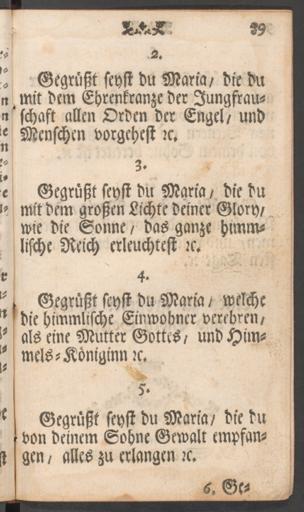 39
2.
Gegrüßt seyst du Maria/ die du
mit dem Ehrenkranze der Jungfrau-
schaft allen Orden der Engel/ und
Menschen vorgehest ꝛc.
3.
Gegrüßt seyst du Maria/ die du
mit dem großen Lichte deiner Glory/
wie die Sonne/ das ganze himm-
lische Reich erleuchtest ꝛc.
4.
Gegrüßt seyst du Maria/ welche
die himmlische Einwohner verehren/
als eine Mutter Gottes/ und Him-
mels-Königinn ꝛc.
5.
Gegrüßt seyst du Maria/ die du
von deinem Sohne Gewalt empfan-
gen/ alles zu erlangen ꝛc.
6. Ge-